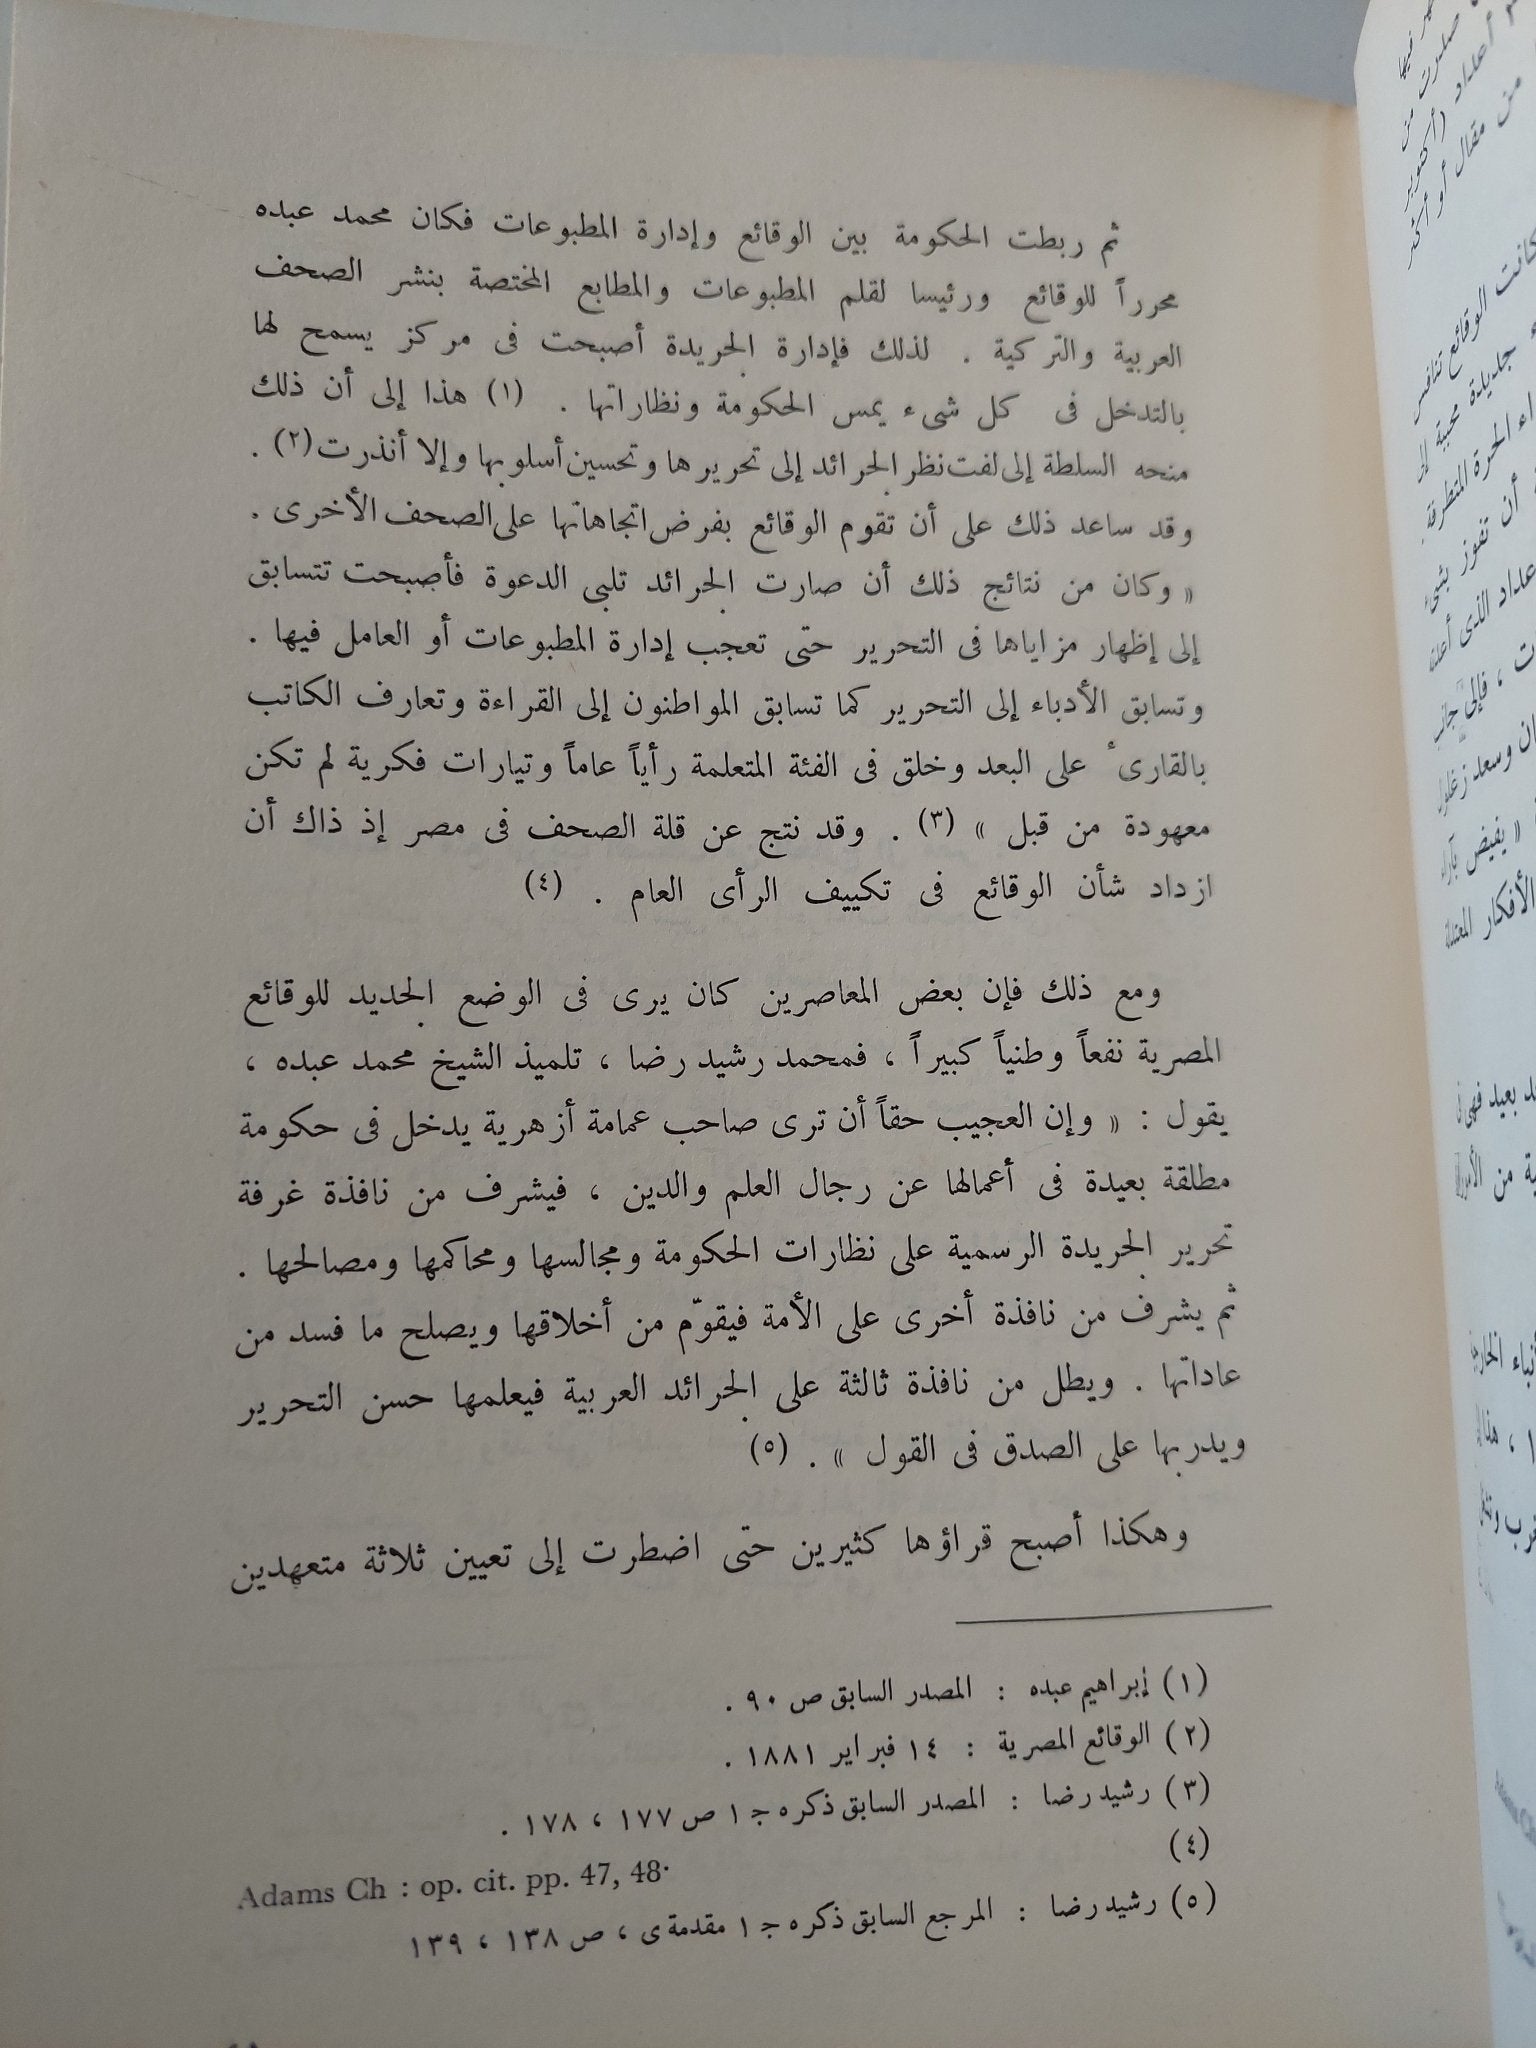 ثم ربطت الحكومة بين الوقائع وإدارة المطبوعات فكان محمد عبده
محرراً للوقائع ورئيسا لقلم المطبوعات والمطابع المختصة بنشر الصحف
العربية والتركية . لذلك فإدارة الجريدة أصبحت فى مركز يسمح لها
بالتدخل فى كل شىء يمس الحكومة ونظاراتها . (١) هذا إلى أن ذلك
منحه السلطة إلى لفت نظر الجرائد إلى تحريرها وتحسين أسلوبها وإلا أنذرت (٢) .
وقد ساعد ذلك على أن تقوم الوقائع بفرض اتجاهاتها على الصحف الأخرى .
« وكان من نتائج ذلك أن صارت الجرائد تلبى الدعوة فأصبحت تتسابق
إلى إظهار مزاياها فى التحرير حتى تعجب إدارة المطبوعات أو العامل فيها .
وتسابق الأدباء إلى التحرير كما تسابق المواطنون إلى القراءة وتعارف الكاتب
بالقارىٔ على البعد وخلق فى الفئة المتعلمة رأياً عاماً وتيارات فكرية لم تكن
معهودة من قبل » (٣) . وقد نتج عن قلة الصحف فى مصر إذ ذاك أن
ازداد شأن الوقائع فى تكييف الرأى العام . (٤)
ومع ذلك فإن بعض المعاصرين كان يرى فى الوضع الجديد للوقائع
المصرية نفعاً وطنياً كبيراً ، فمحمد رشيد رضا ، تلميذ الشيخ محمد عبده ،
يقول : « وإن العجيب حقاً أن ترى صاحب عمامة أزهرية يدخل فى حكومة
مطلقة بعيدة فى أعمالها عن رجال العلم والدين ، فيشرف من نافذة غرفة
تحرير الجريدة الرسمية على نظارات الحكومة ومجالسها ومحاكمها ومصالحها .
ثم يشرف من نافذة أخرى على الأمة فيقوّم من أخلاقها ويصلح ما فسد من
عاداتها . ويطل من نافذة ثالثة على الجرائد العربية فيعلمها حسن التحرير
ويدربها على الصدق فى القول » . (٥)
وهكذا أصبح قراؤها كثيرين حتى اضطرت إلى تعيين ثلاثة متعهدين
(١) إبراهيم عبده : المصدر السابق ص ٩٠ .
(٢) الوقائع المصرية : ١٤ فبراير ١٨٨١ .
(٣) رشيد رضا : المصدر السابق ذكره ج ١ ص ١٧٧ ، ١٧٨ .
(٤)
Adams Ch : op. cit. pp. 47, 48·
(٥) رشيد رضا : المرجع السابق ذكره ج ١ مقدمة ى ، ص ١٣٨ ، ١٣٩
فيها
صدرت من
أعداد (أكتوبر
من مقال أو أكثر
كانت الوقائع تنافس
جديدة محببة إلى
الحرة المتطرفة
أن تفوز بشىء
الذى أعلنه
ت ، فإلى جانب
ان وسعد زغلول
« يفيض بآراء
الأفكار المعتدلة
بعيد فهى فى
من